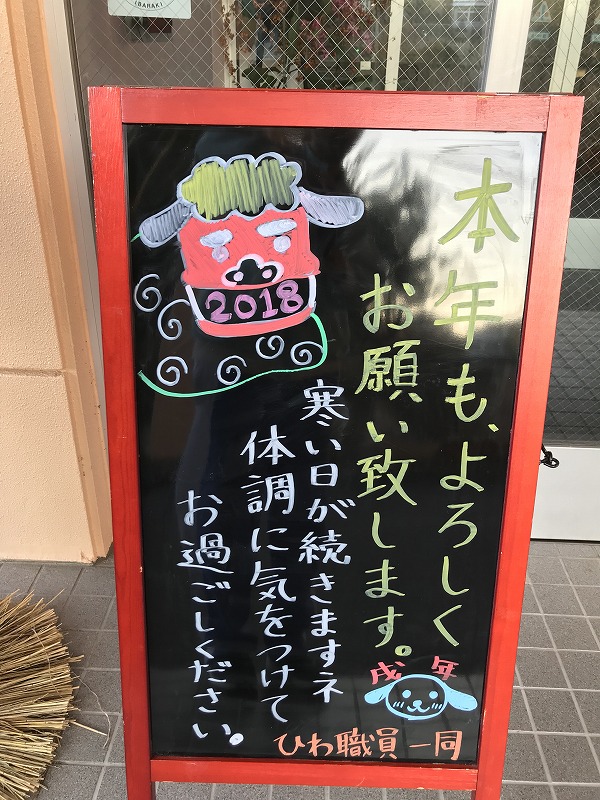 IBARAKI
本年も、よろしく
お願い致します。
2018
寒い日が続きますネ
体調に気をつけて
お過ごしください。
戌年
ひわ職員一同